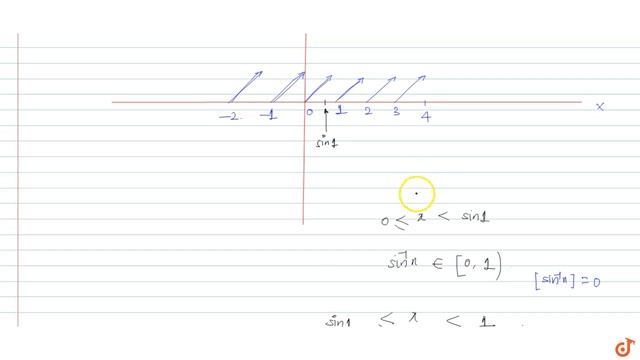 -2 -1 0 1 2 3 4 x
sin1
0 ≤ x < sin1
sin⁻¹x ∈ [0, 1)
[sin⁻¹x] = 0
sin1 ≤ x < 1